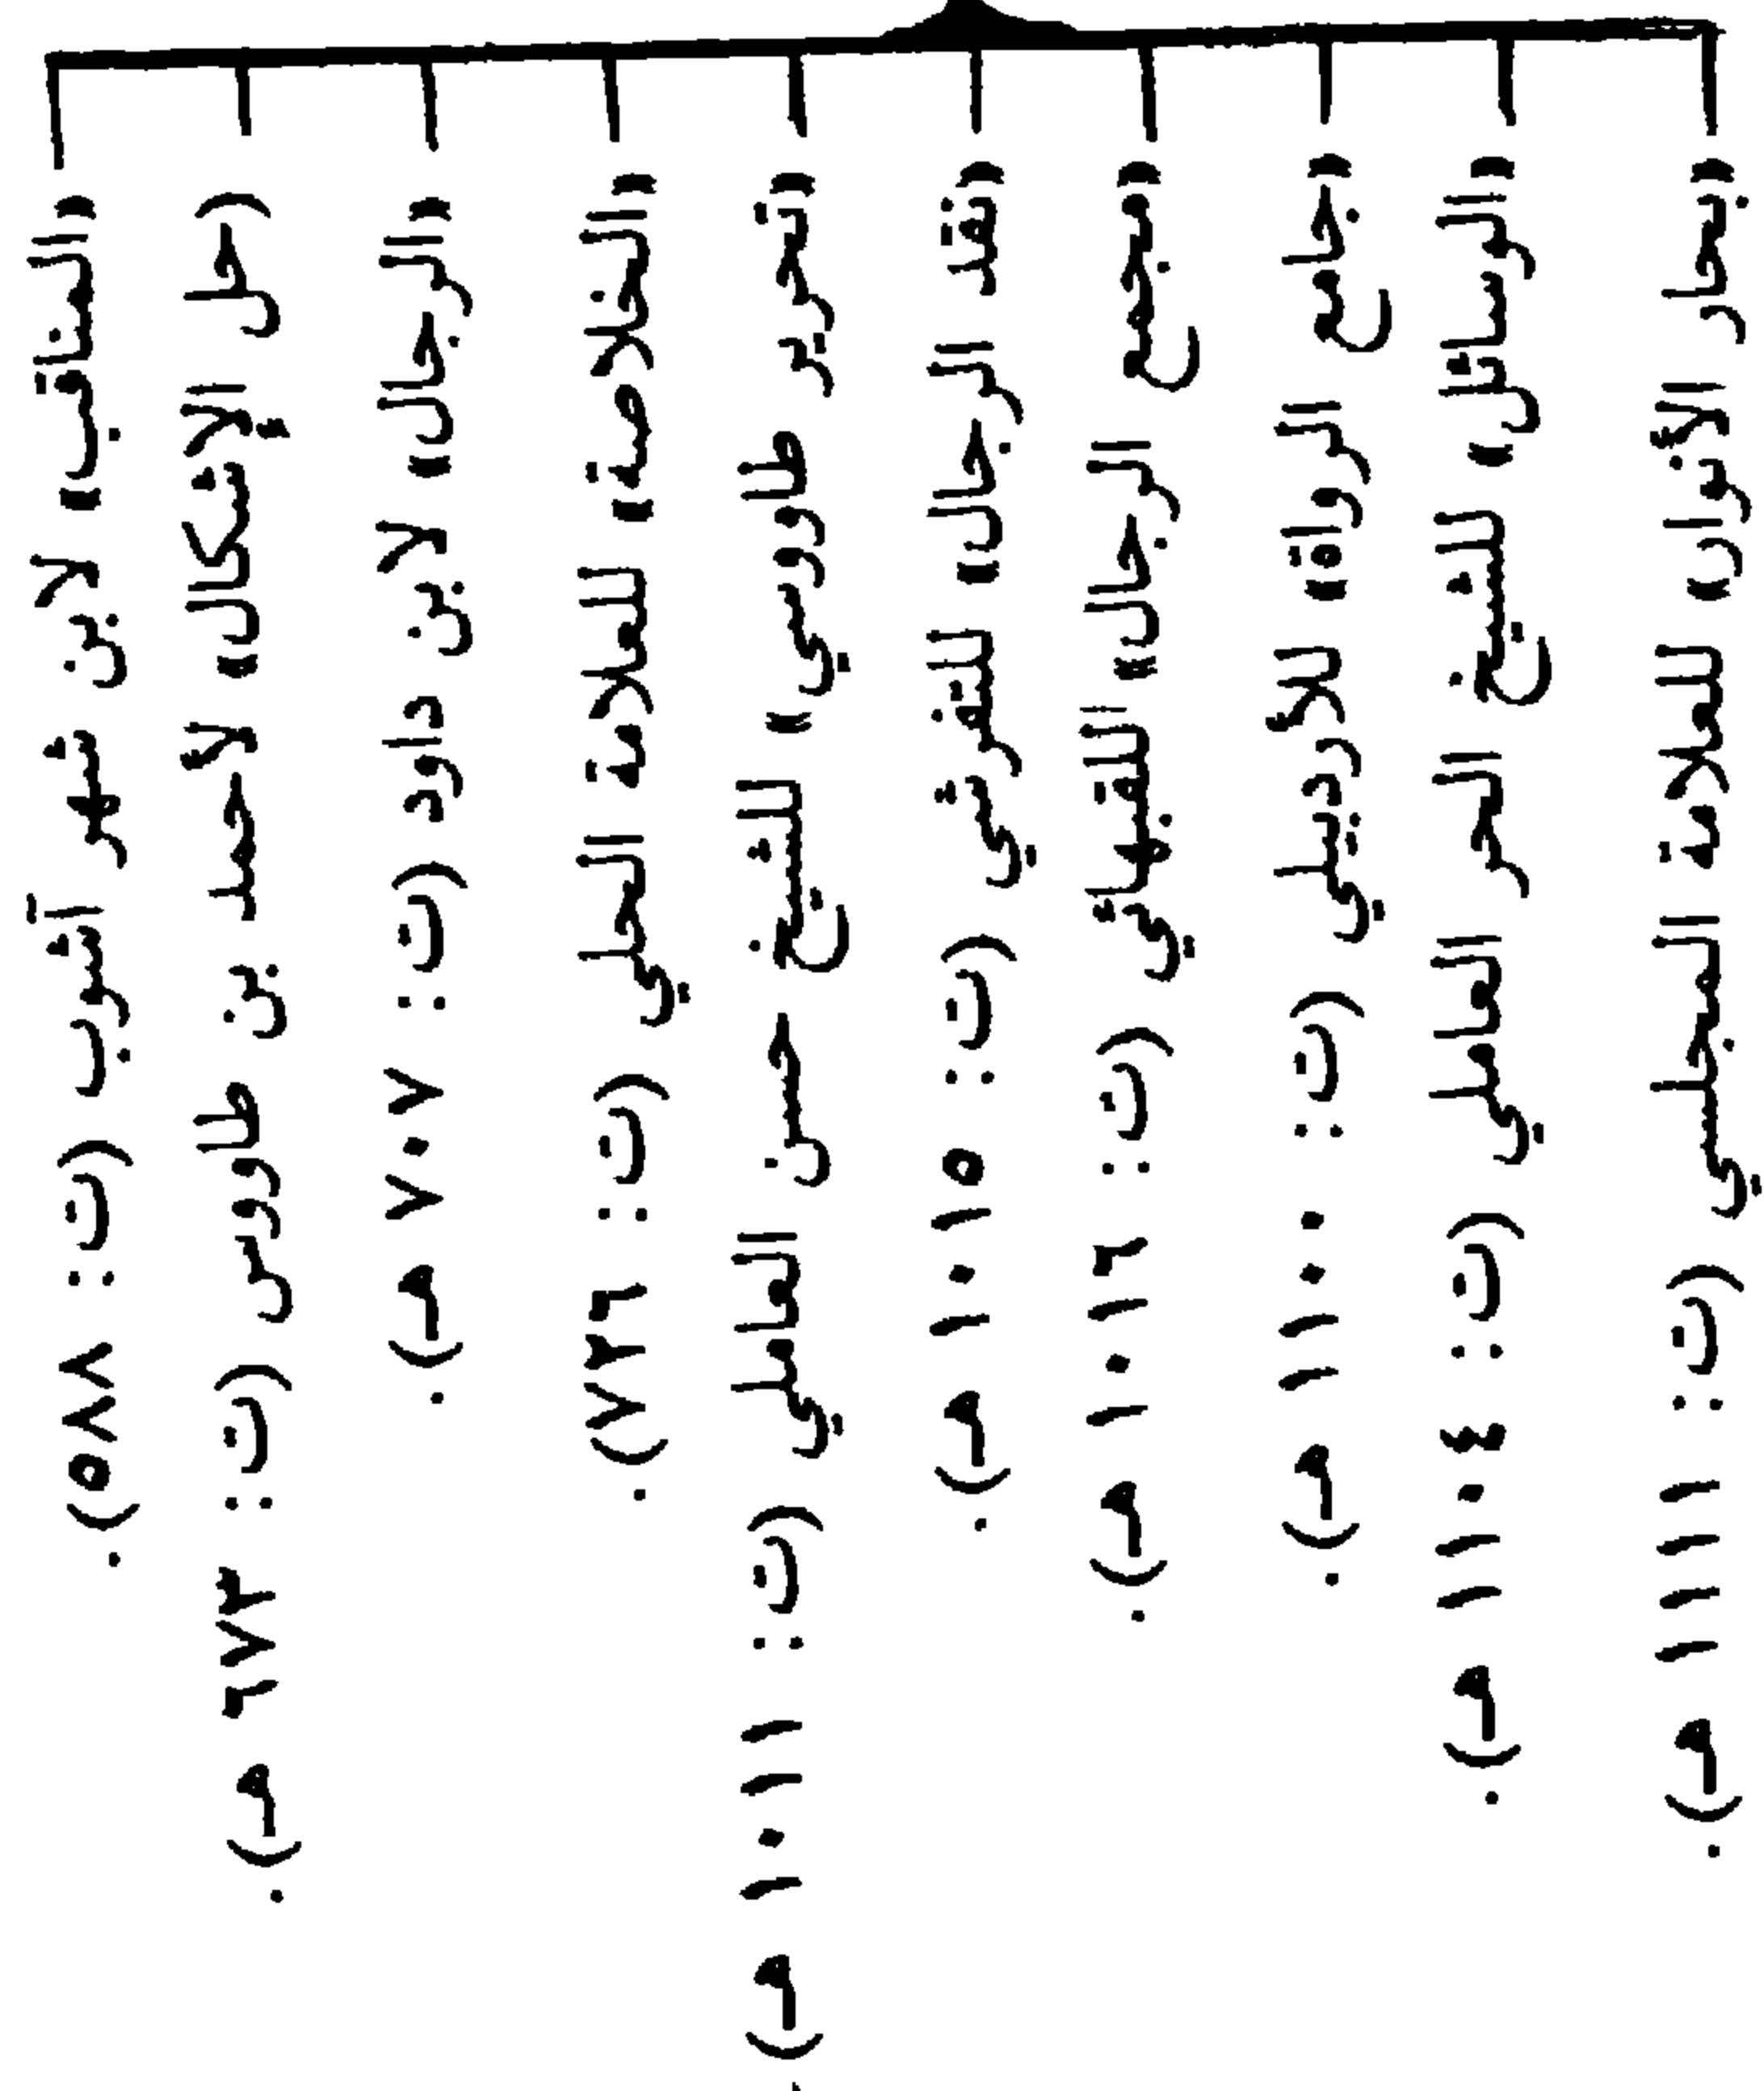 «بحار الأنوار» للعلامة المجلسي (ت: ١١١١ هـ).
«الوسائل» للشيخ الحر العاملي (ت: ١١٠٤ هـ).
«جامع الرواة» للأردبيلي (ت: ١١٠٠ هـ).
«مجمع الرجال» للقهبائي (ت: ١٠١٦ هـ).
«نقد الرجال» للتفرشي (ت: ١٠١٥ هـ).
«تحرير طاووسي» للشيخ حسن العاملي (ت: ١٠١١ هـ).
«الخلاصة» للعلامة الحلي (ت: ٧٢٦).
«الرجال» لابن داود (ت: ٧٠٧ هـ).
(حل الإشكال» لأحمد بن طاووس (ت: ٦٧٣ هـ).
«المناقب» لابن شهر آشوب (ت: ٥٨٨).